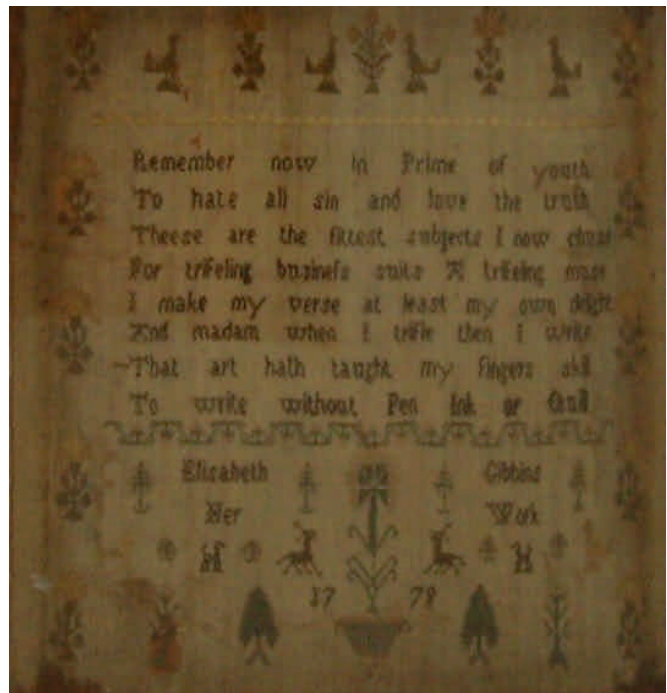 Remember now in Prime of youth
To hate all sin and love the truth
Theese are the fittest subjects I now chuse
For trifeling businefs suits A trifeling muse
I make my verse at least my own delight
And madam when I trifle then I write
That art hath taught my fingers skill
To write without Pen Ink or Quill
Elisabeth Gibbins
Her Work
17 78